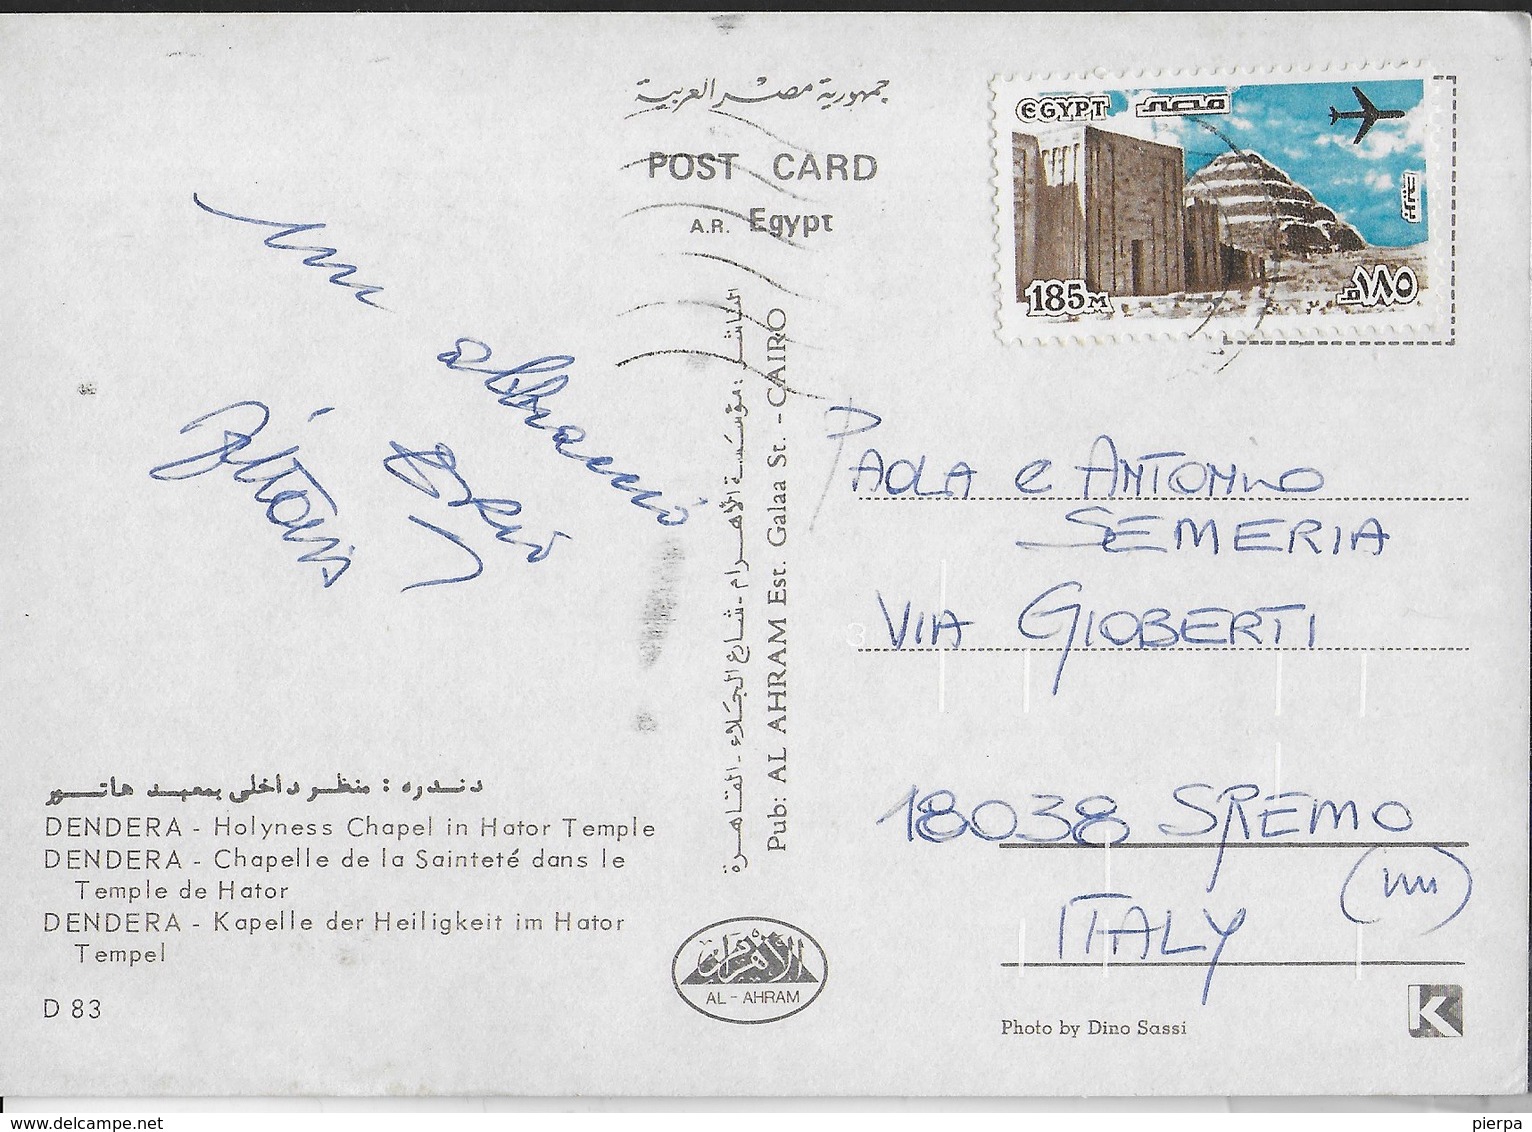 جمهورية مصر العربية
POST CARD
A.R. Egypt
EGYPT مصر
185M
١٨٥م
un
abbraccio
الناشر : مؤسسة الأهرام - شارع الجلاء - القاهرة
Pub: AL AHRAM Est. Galaa St. - CAIRO
PAOLA e ANTONINO
SEMERIA
VIA GIOBERTI
18038 SREMO
(IM)
ITALY
دندره : منظر داخلى بمعبد هاتور
DENDERA - Holyness Chapel in Hator Temple
DENDERA - Chapelle de la Sainteté dans le
Temple de Hator
DENDERA - Kapelle der Heiligkeit im Hator
Tempel
D 83
الأهرام
AL - AHRAM
Photo by Dino Sassi
K
www.delcampe.net
pierpa